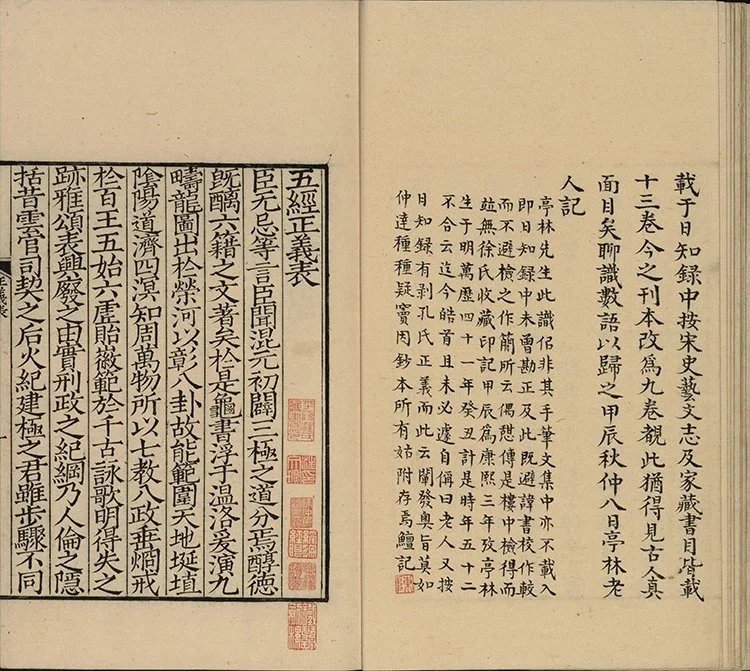 載于日知録中按宋史藝文志及家藏書目皆載
十三卷今之刊本改爲九卷覩此猶得見古人真
面目矣聊識數語以歸之甲辰秋仲八日亭林老
人記
亭林先生此識佀非其手筆文集中亦不載入
即日知録中未曾勘正及此既避諱書校作較
而不避檢之作簡所云偶憇傳是樓中檢得而
竝無徐氏收藏印記甲辰爲康熙三年攷亭林
生于明萬歷四十一年癸丑計是時年五十二
不合云迄今皓首且未必遽自偁曰老人又按
日知録有剥孔氏正義而此云闡發奥旨莫如
仲達種種疑竇因鈔本所有姑附存焉鱣記
五經正義表
臣无忌等言臣聞混元初闢三極之道分焉醇德
既醨六籍之文著矣於是龜書浮于温洛爰演九
疇龍圖出於榮河以彰八卦故能範圍天地埏埴
隂陽道濟四溟知周萬物所以七教八政垂烱戒
於百王五始六虛貽徽範於千古詠歌明得失之
跡雅頌表興廢之由實刑政之紀綱乃人倫之隱
括昔雲官司契之后火紀建極之君雖步驟不同